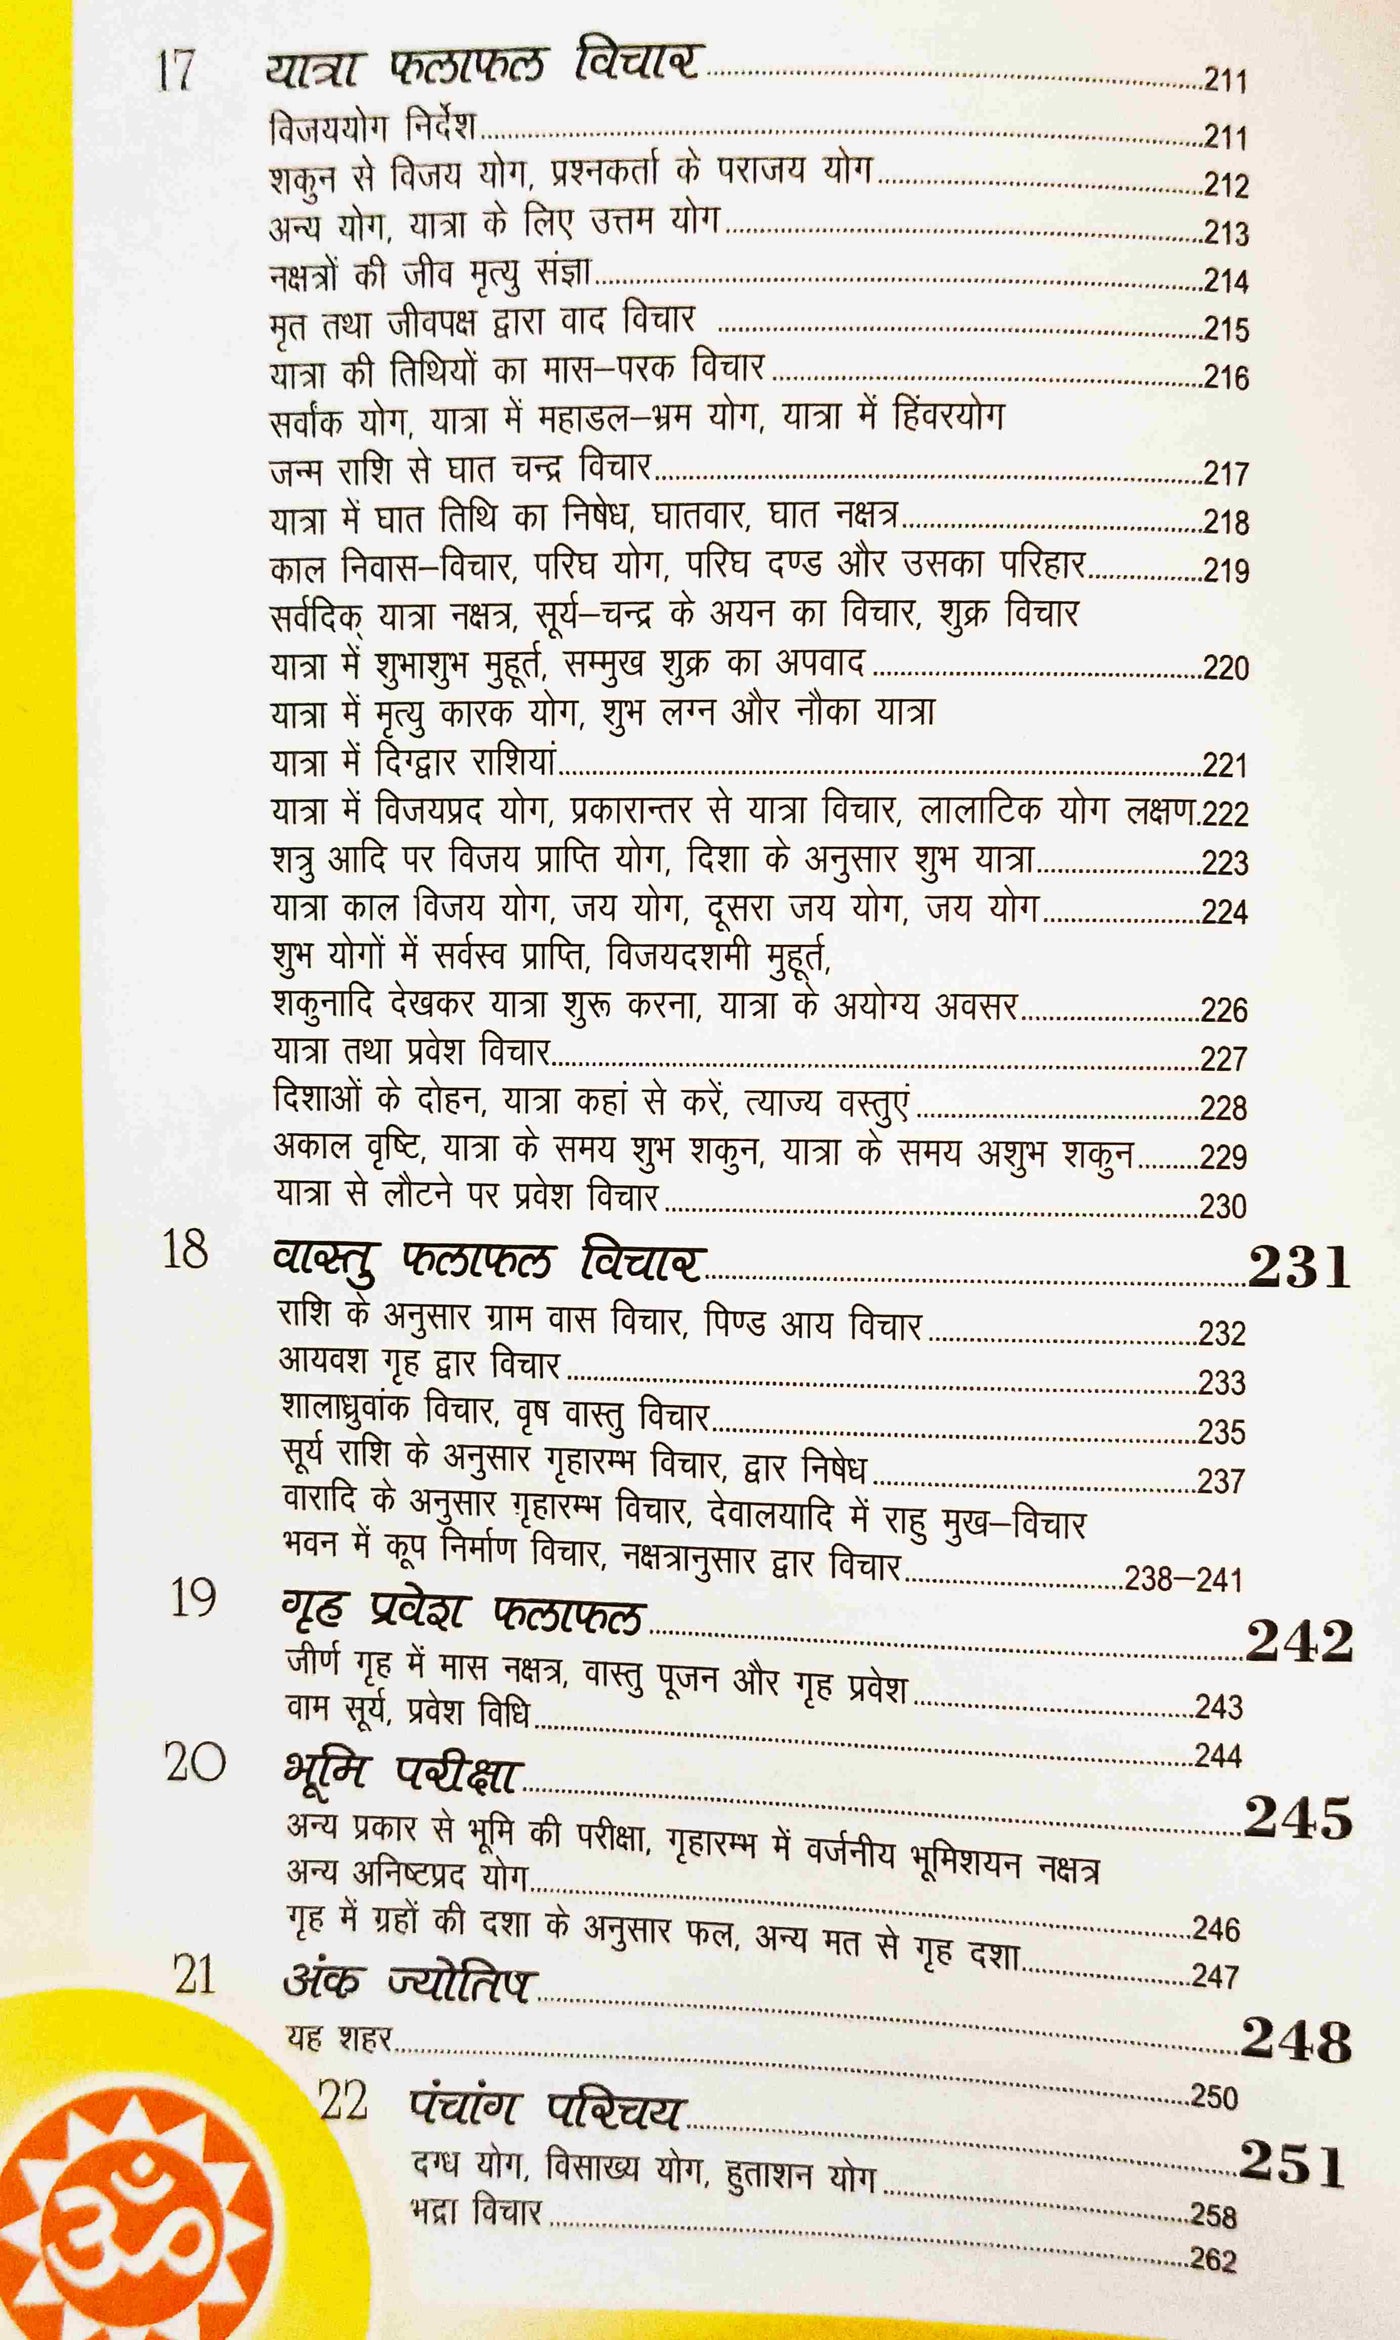 17 यात्रा फलाफल विचार 211
विजययोग निर्देश 211
शकुन से विजय योग, प्रश्नकर्ता के पराजय योग 212
अन्य योग, यात्रा के लिए उत्तम योग 213
नक्षत्रों की जीव मृत्यु संज्ञा 214
मृत तथा जीवपक्ष द्वारा वाद विचार 215
यात्रा की तिथियों का मास–परक विचार 216
सर्वांक योग, यात्रा में महाडल–भ्रम योग, यात्रा में हिंवरयोग
जन्म राशि से घात चन्द्र विचार 217
यात्रा में घात तिथि का निषेध, घातवार, घात नक्षत्र 218
काल निवास–विचार, परिघ योग, परिघ दण्ड और उसका परिहार 219
सर्वदिक् यात्रा नक्षत्र, सूर्य–चन्द्र के अयन का विचार, शुक्र विचार
यात्रा में शुभाशुभ मुहूर्त, सम्मुख शुक्र का अपवाद 220
यात्रा में मृत्यु कारक योग, शुभ लग्न और नौका यात्रा
यात्रा में दिग्द्वार राशियां 221
यात्रा में विजयप्रद योग, प्रकारान्तर से यात्रा विचार, लालाटिक योग लक्षण.222
शत्रु आदि पर विजय प्राप्ति योग, दिशा के अनुसार शुभ यात्रा 223
यात्रा काल विजय योग, जय योग, दूसरा जय योग, जय योग 224
शुभ योगों में सर्वस्व प्राप्ति, विजयदशमी मुहूर्त,
शकुनादि देखकर यात्रा शुरू करना, यात्रा के अयोग्य अवसर 226
यात्रा तथा प्रवेश विचार 227
दिशाओं के दोहन, यात्रा कहां से करें, त्याज्य वस्तुएं 228
अकाल वृष्टि, यात्रा के समय शुभ शकुन, यात्रा के समय अशुभ शकुन 229
यात्रा से लौटने पर प्रवेश विचार 230
18 वास्तु फलाफल विचार 231
राशि के अनुसार ग्राम वास विचार, पिण्ड आय विचार 232
आयवश गृह द्वार विचार 233
शालाध्रुवांक विचार, वृष वास्तु विचार 235
सूर्य राशि के अनुसार गृहारम्भ विचार, द्वार निषेध 237
वारादि के अनुसार गृहारम्भ विचार, देवालयादि में राहु मुख–विचार
भवन में कूप निर्माण विचार, नक्षत्रानुसार द्वार विचार 238–241
19 गृह प्रवेश फलाफल 242
जीर्ण गृह में मास नक्षत्र, वास्तु पूजन और गृह प्रवेश 243
वाम सूर्य, प्रवेश विधि 244
20 भूमि परीक्षा 245
अन्य प्रकार से भूमि की परीक्षा, गृहारम्भ में वर्जनीय भूमिशयन नक्षत्र
अन्य अनिष्टप्रद योग 246
गृह में ग्रहों की दशा के अनुसार फल, अन्य मत से गृह दशा 247
21 अंक ज्योतिष 248
यह शहर 250
22 पंचांग परिचय 251
दग्ध योग, विसाख्य योग, हुताशन योग 258
भद्रा विचार 262
ॐ